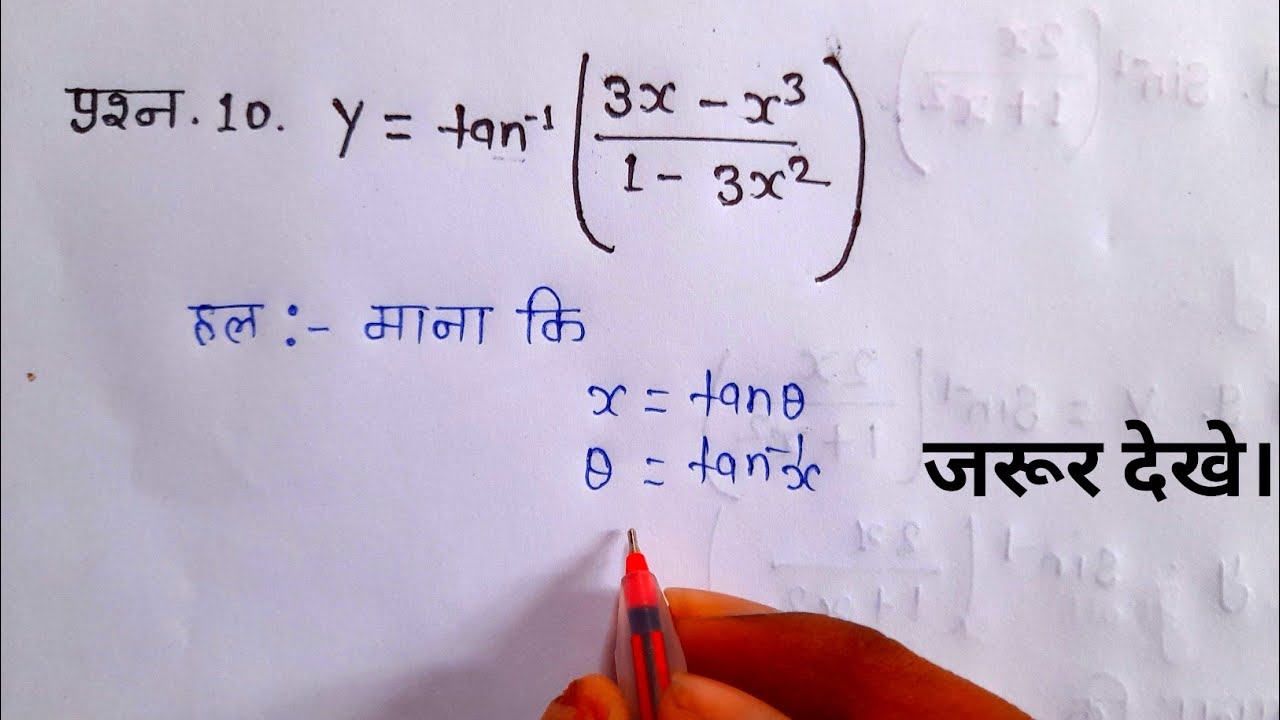 प्रश्न. 10. y = tan⁻¹ (3x - x³ / 1 - 3x²)
हल :- माना कि
x = tanθ
θ = tan⁻¹x
जरूर देखे।